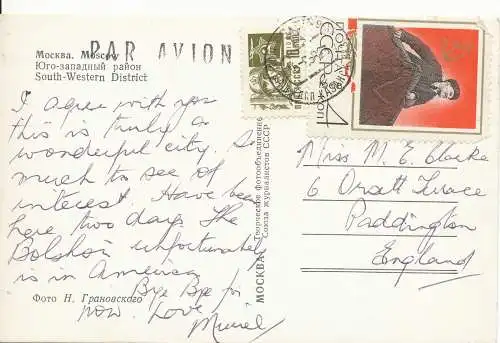 Москва. Moscow
Юго-западный район
South-Western District
PAR AVION
I agree with you
this is truly a
wonderful city. So
much to see of
interest. Have been
here two days. The
Bolshoi unfortunately
is in America
Bye Bye for
now. Love
Muriel
Фото Н. Грановского
МОСКВА
Творческое фотообъединение
Союза журналистов СССР
ПОЧТА
СССР
4 КОП
Miss M. E. Clarke
6 Orsett Terrace
Paddington
England